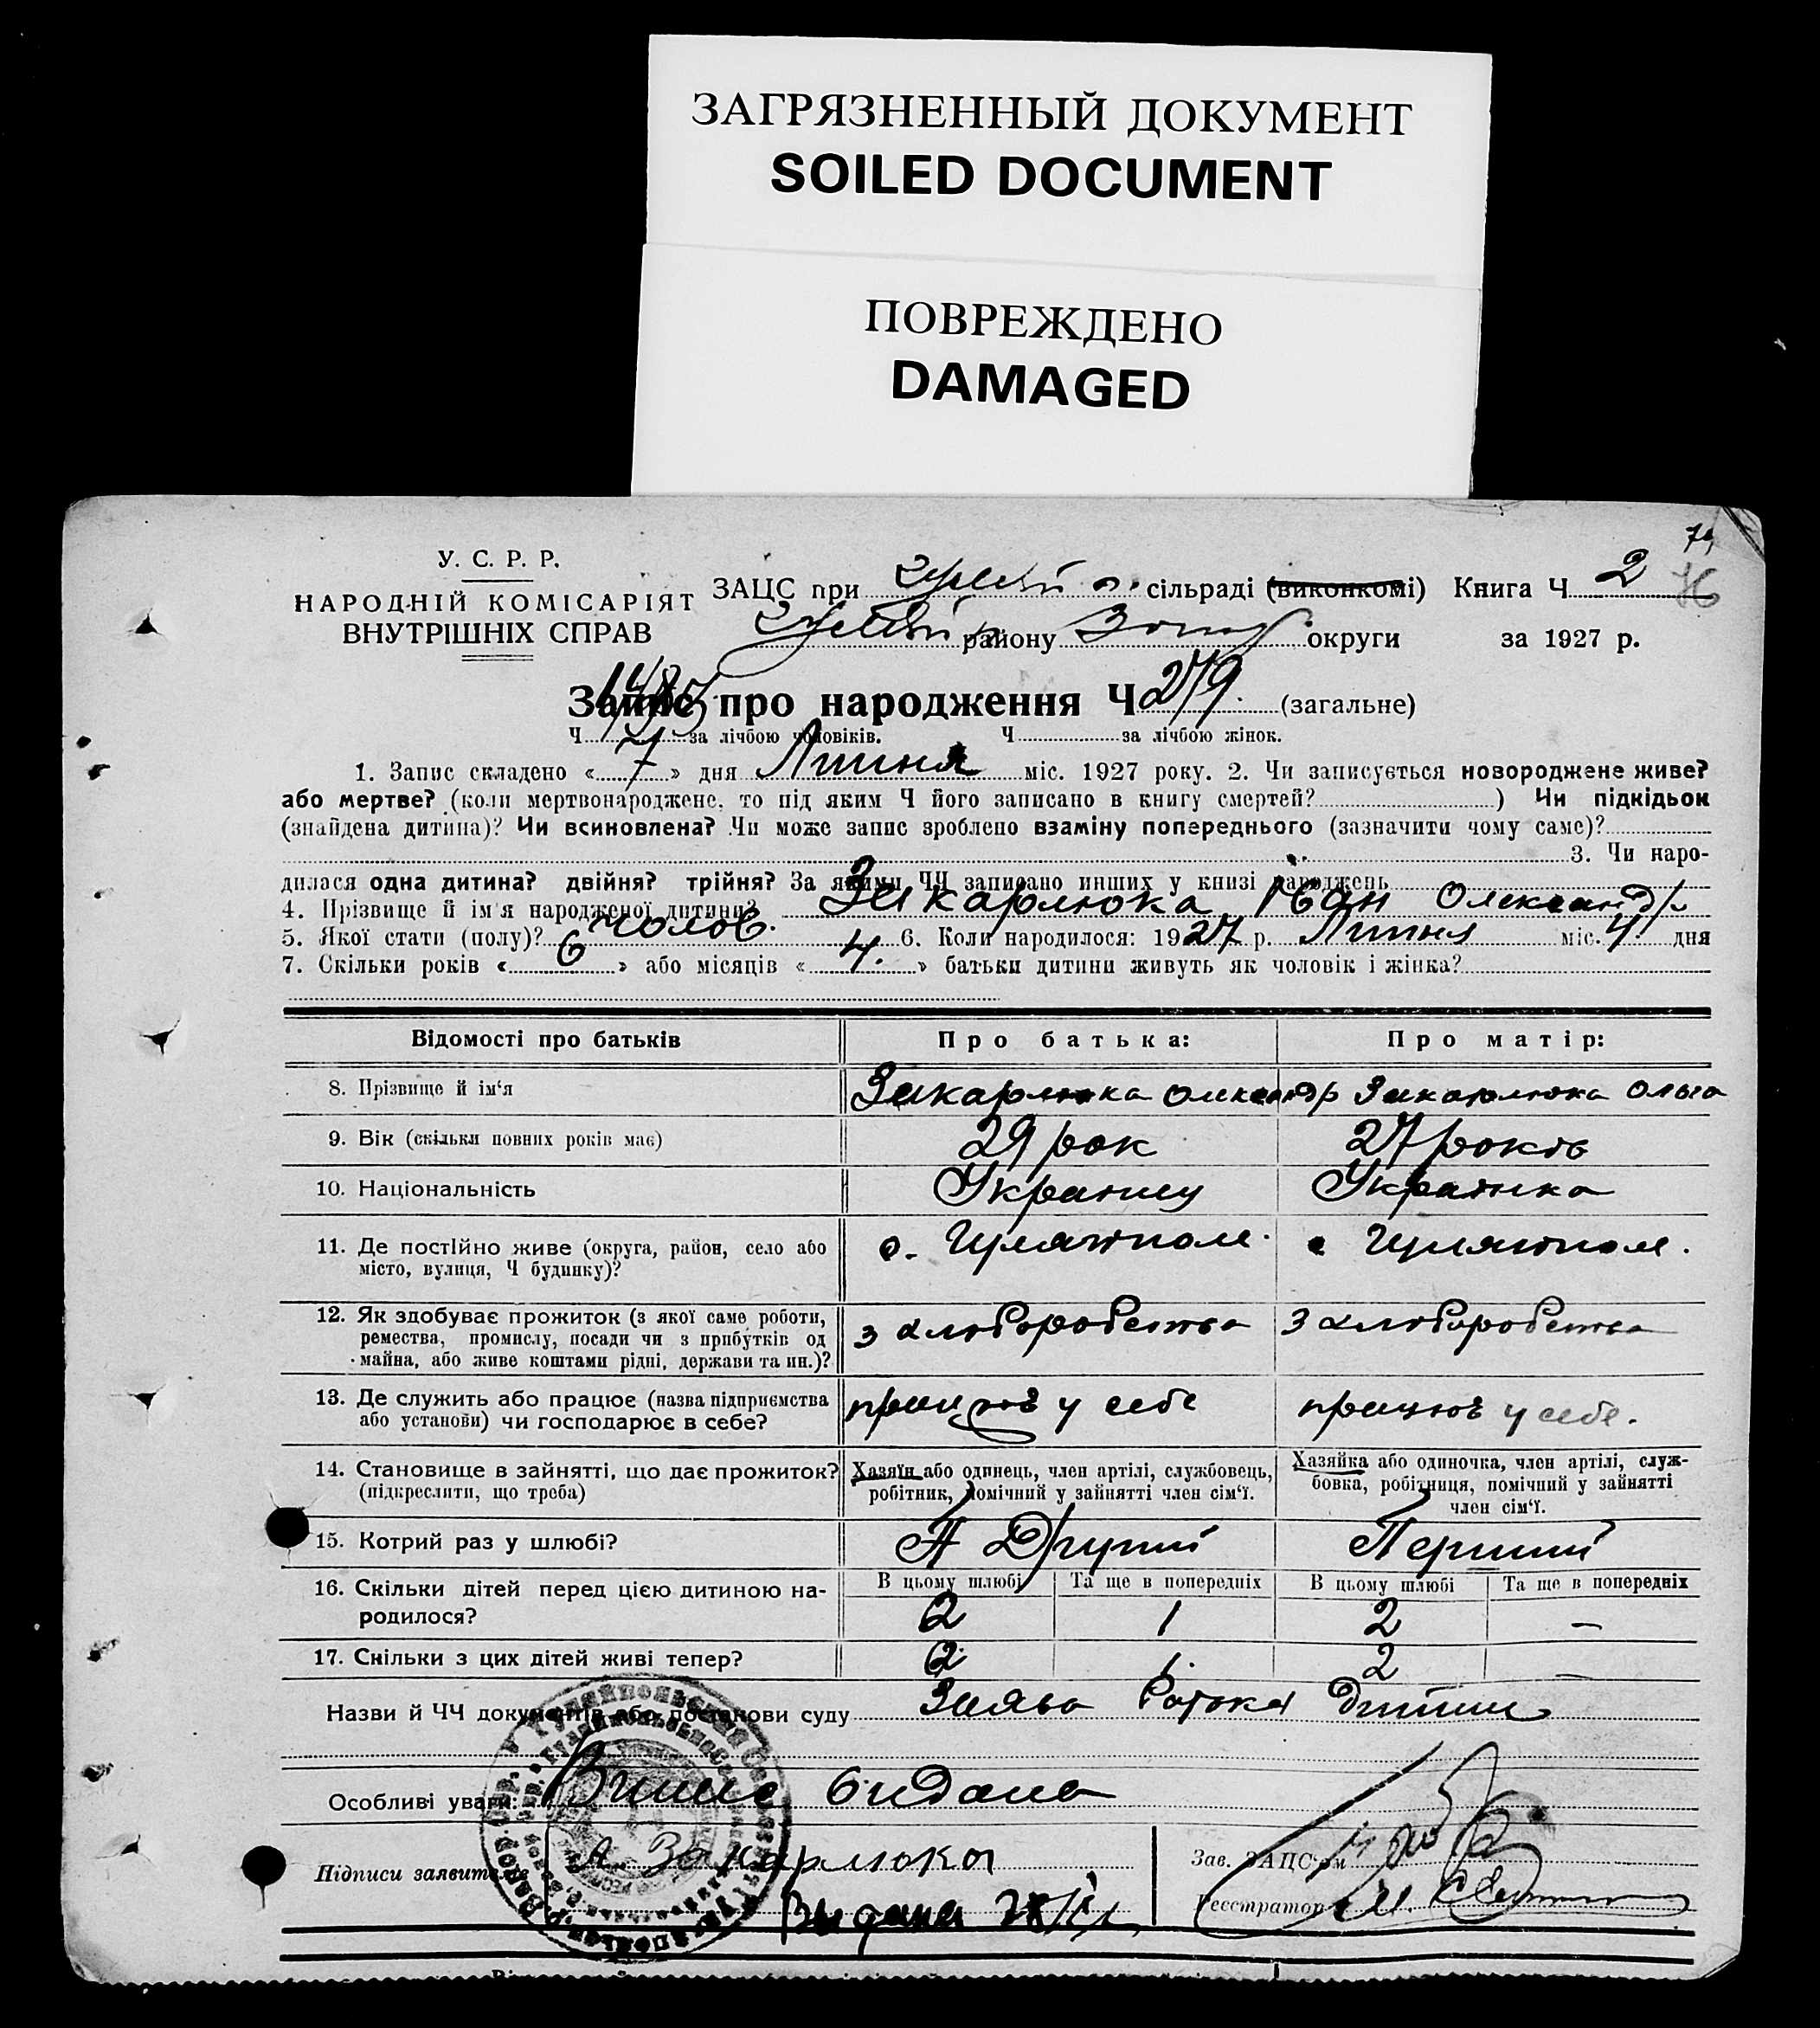 ЗАГРЯЗНЕННЫЙ ДОКУМЕНТ
SOILED DOCUMENT
ПОВРЕЖДЕНО
DAMAGED
У. С. Р. Р.
НАРОДНІЙ КОМІСАРІЯТ
ВНУТРІШНІХ СПРАВ
ЗАЦС при сільраді (виконкомі) Книга Ч 2
76
району округи за 1927 р.
Запис про народження Ч 279. (загальне)
Ч за лічбою чоловіків. Ч за лічбою жінок.
1. Запис складено « 7 » дня Липня міс. 1927 року. 2. Чи записується новороджене живе?
або мертве? (коли мертвонароджене, то під яким Ч його записано в книгу смертей? ) Чи підкідьок
(знайдена дитина)? Чи всиновлена? Чи може запис зроблено взаміну попереднього (зазначити чому саме)?
3. Чи наро-
дилася одна дитина? двійня? трійня? За якими ЧЧ записано инших у книзі народжень
4. Прізвище й ім'я народженої дитини? Закарлюка Іван Олександр
5. Якої стати (полу)? чолов. 6. Коли народилося: 1927 р. Липня міс. 4. дня
7. Скільки років « 6 » або місяців « 4. » батьки дитини живуть як чоловік і жінка?
Відомості про батьків Про батька: Про матір:
8. Прізвище й ім'я Закарлюка Олександр Закарлюка Ольга
9. Вік (скільки повних років має) 29 рок 27 років
10. Національність Українец Українка
11. Де постійно живе (округа, район, село або
місто, вулиця, Ч будинку)?
с. Гуляйполе. с Гуляйполе.
12. Як здобуває прожиток (з якої саме роботи,
ремества, промислу, посади чи з прибутків од
майна, або живе коштами рідні, держави та ин.)?
з хліборобства з хліборобства
13. Де служить або працює (назва підприємства
або установи) чи господарює в себе?
працює у себе працює у себе.
14. Становище в зайнятті, що дає прожиток?
(підкреслити, що треба)
Хазяїн або одинець, член артілі, службовець,
робітник, помічний у зайнятті член сім'ї.
Хазяйка або одиночка, член артілі, служ-
бовка, робітниця, помічний у зайнятті
член сім'ї.
15. Котрий раз у шлюбі? Другий Перший
16. Скільки дітей перед цією дитиною на-
родилося?
В цьому шлюбі Та ще в попередніх В цьому шлюбі Та ще в попередніх
2 1 2 —
17. Скільки з цих дітей живі тепер? 2 1. 2 —
Назви й ЧЧ документів або постанови суду Заява
Особливі уваги: видана
Підписи заявителів А. Закарлюка
Зав. ЗАЦС'ом
Реєстратор
Видана